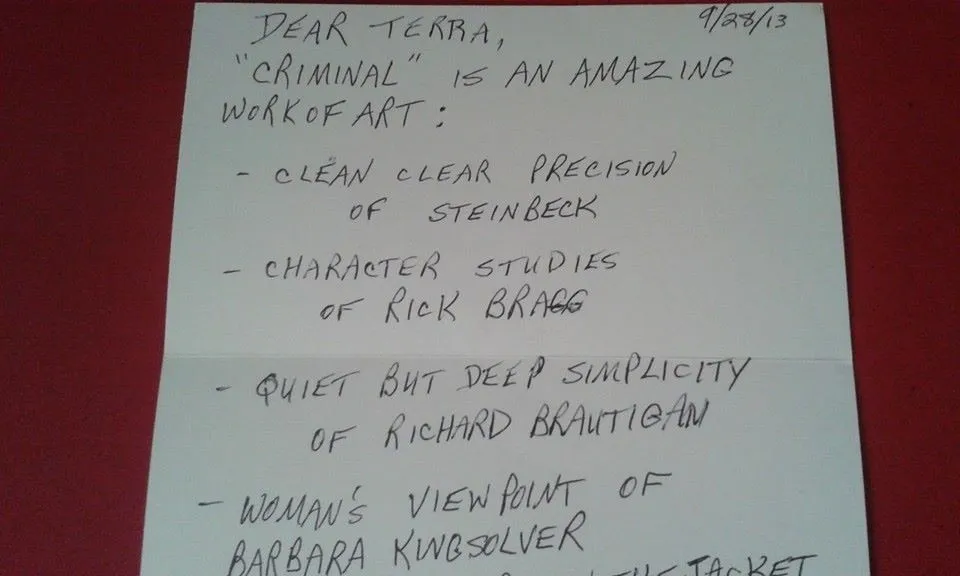 9/28/13
DEAR TERRA,
"CRIMINAL" IS AN AMAZING
WORK OF ART:
- CLEAN CLEAR PRECISION
OF STEINBECK
- CHARACTER STUDIES
OF RICK BRAGG
- QUIET BUT DEEP SIMPLICITY
OF RICHARD BRAUTIGAN
- WOMAN'S VIEWPOINT OF
BARBARA KINGSOLVER
THE JACKET